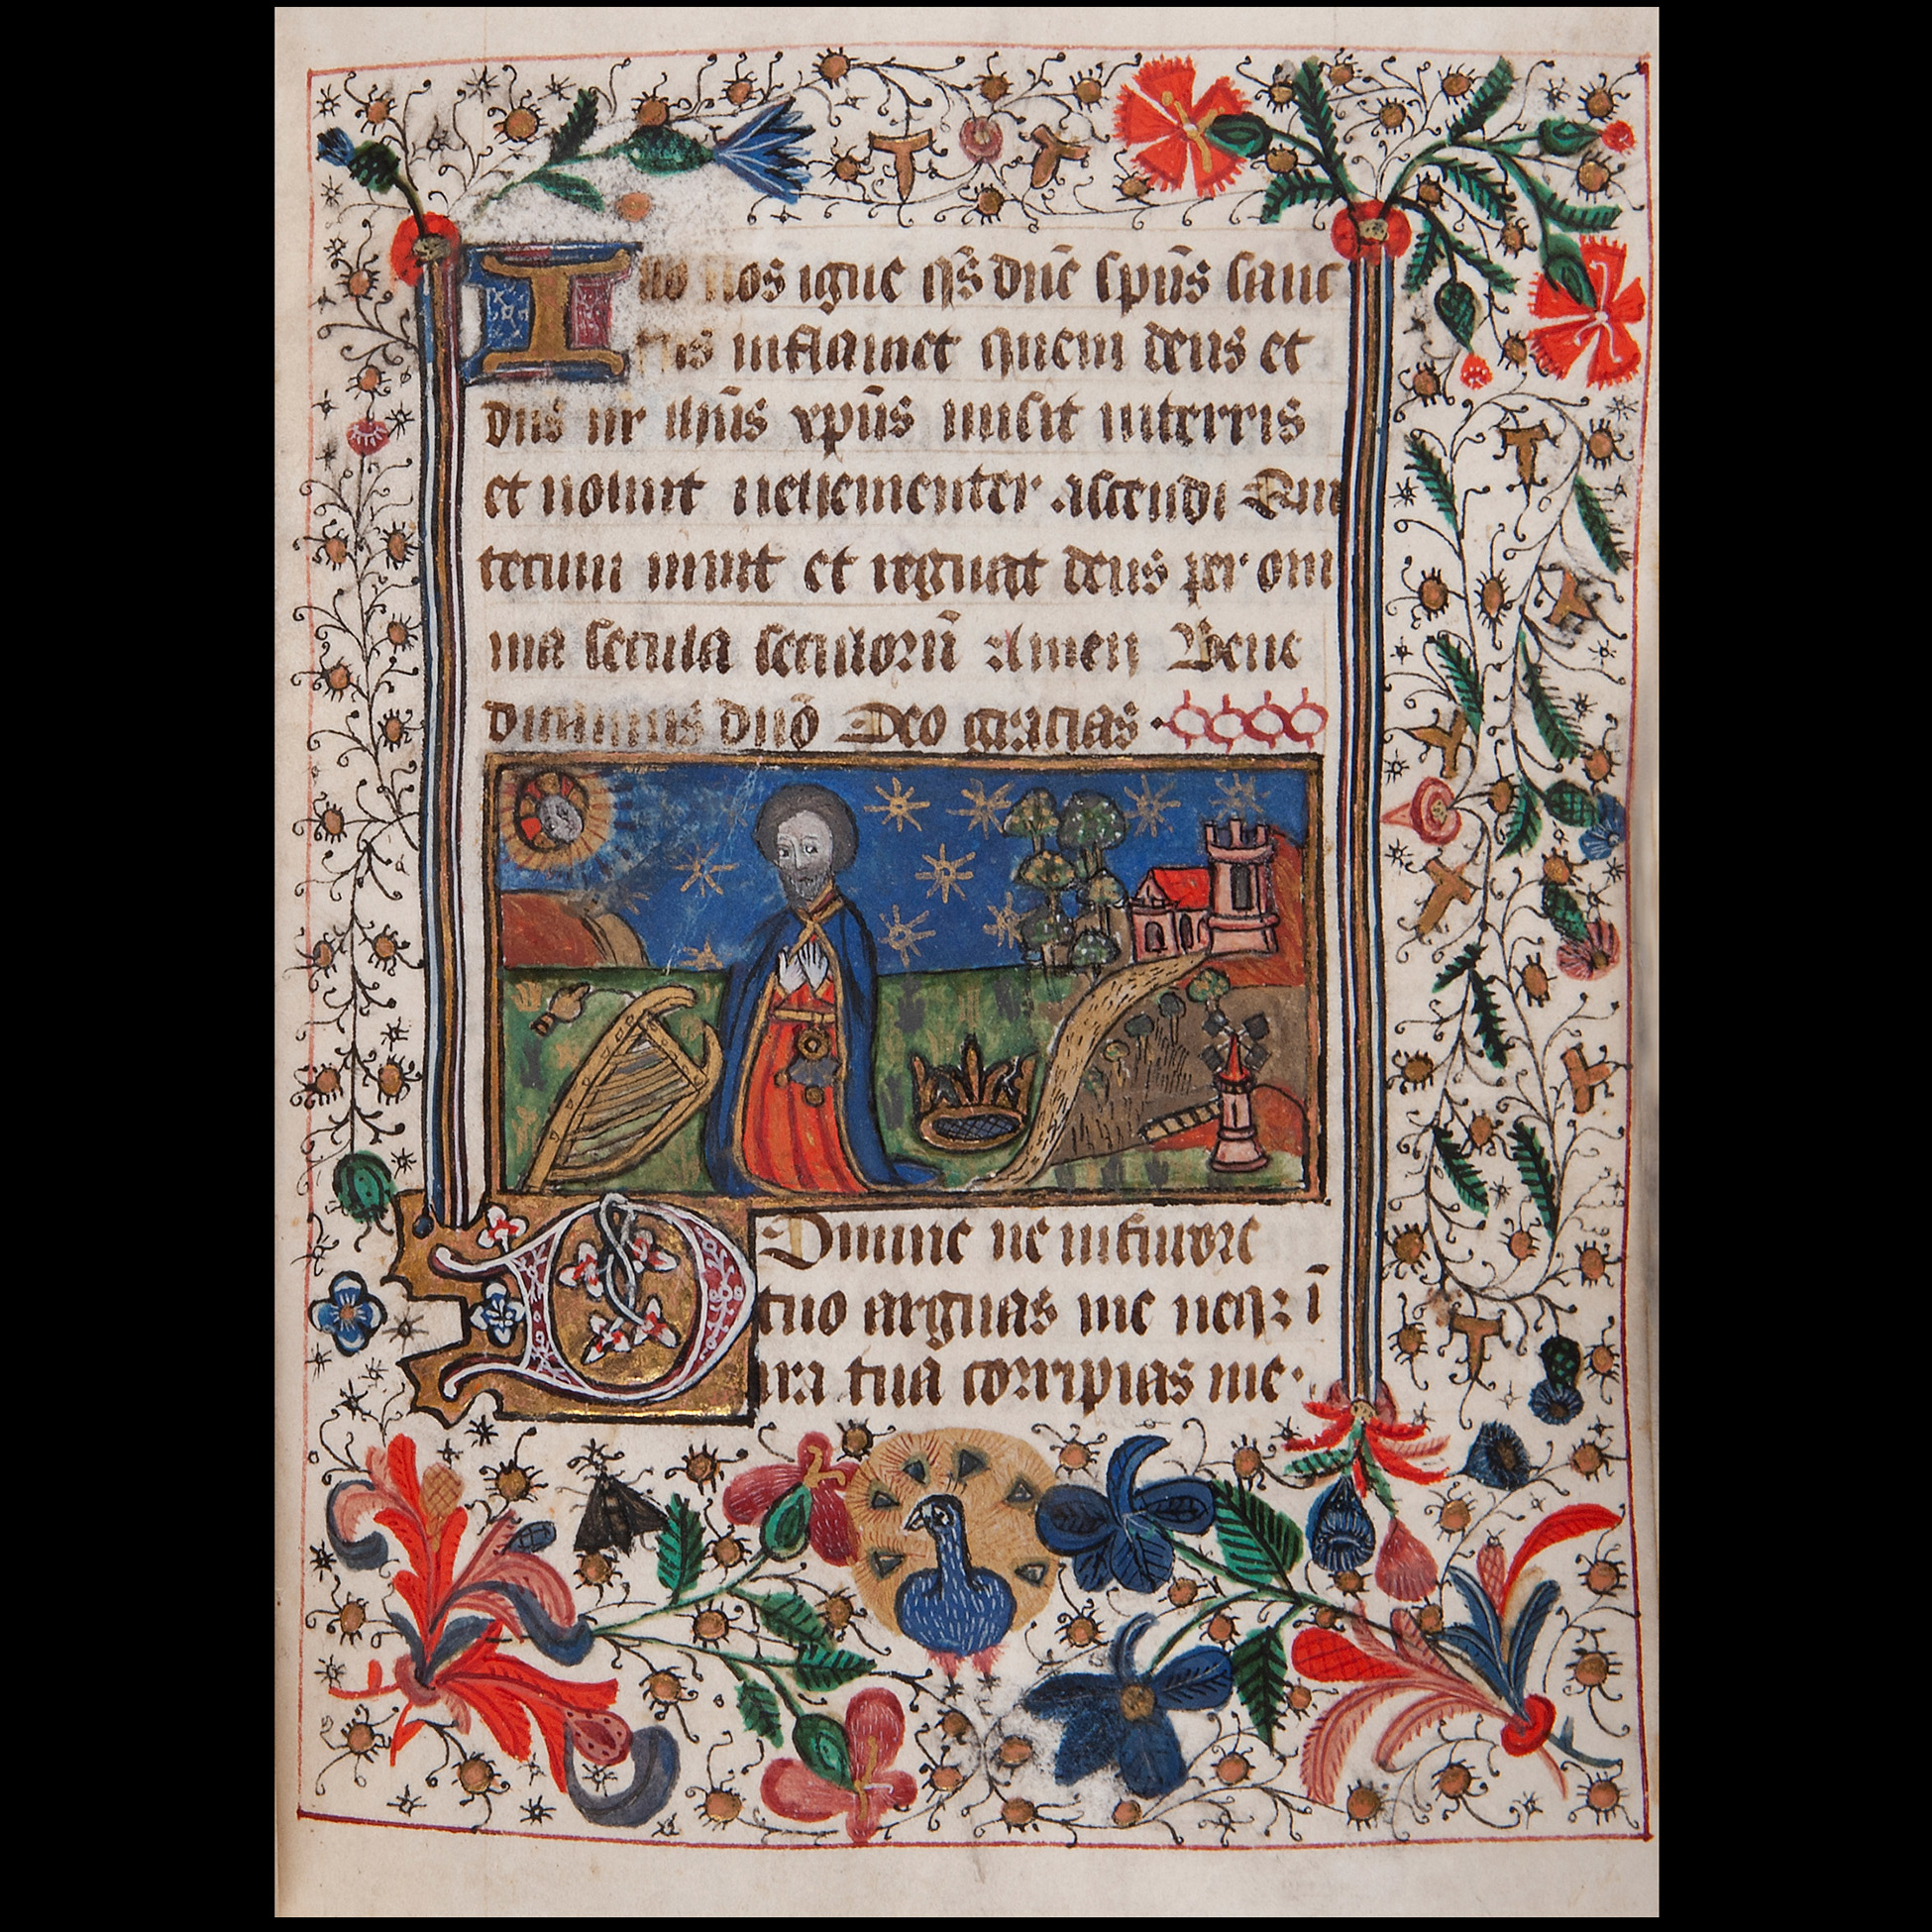 Illo nos igne qs̄ dn̄e spūs sanc
tus inflamet quem deus et
dn̄s nr̄ ihūs xpūs misit interris
et voluit vehementer ascendi Qui
tecum viuit et regnat deus per om
nia secula seculorū Amen Bene
dicamus dn̄o Deo gracias
Domine ne infurore
tuo arguas me neqꝫ ī
ira tua corripias me·